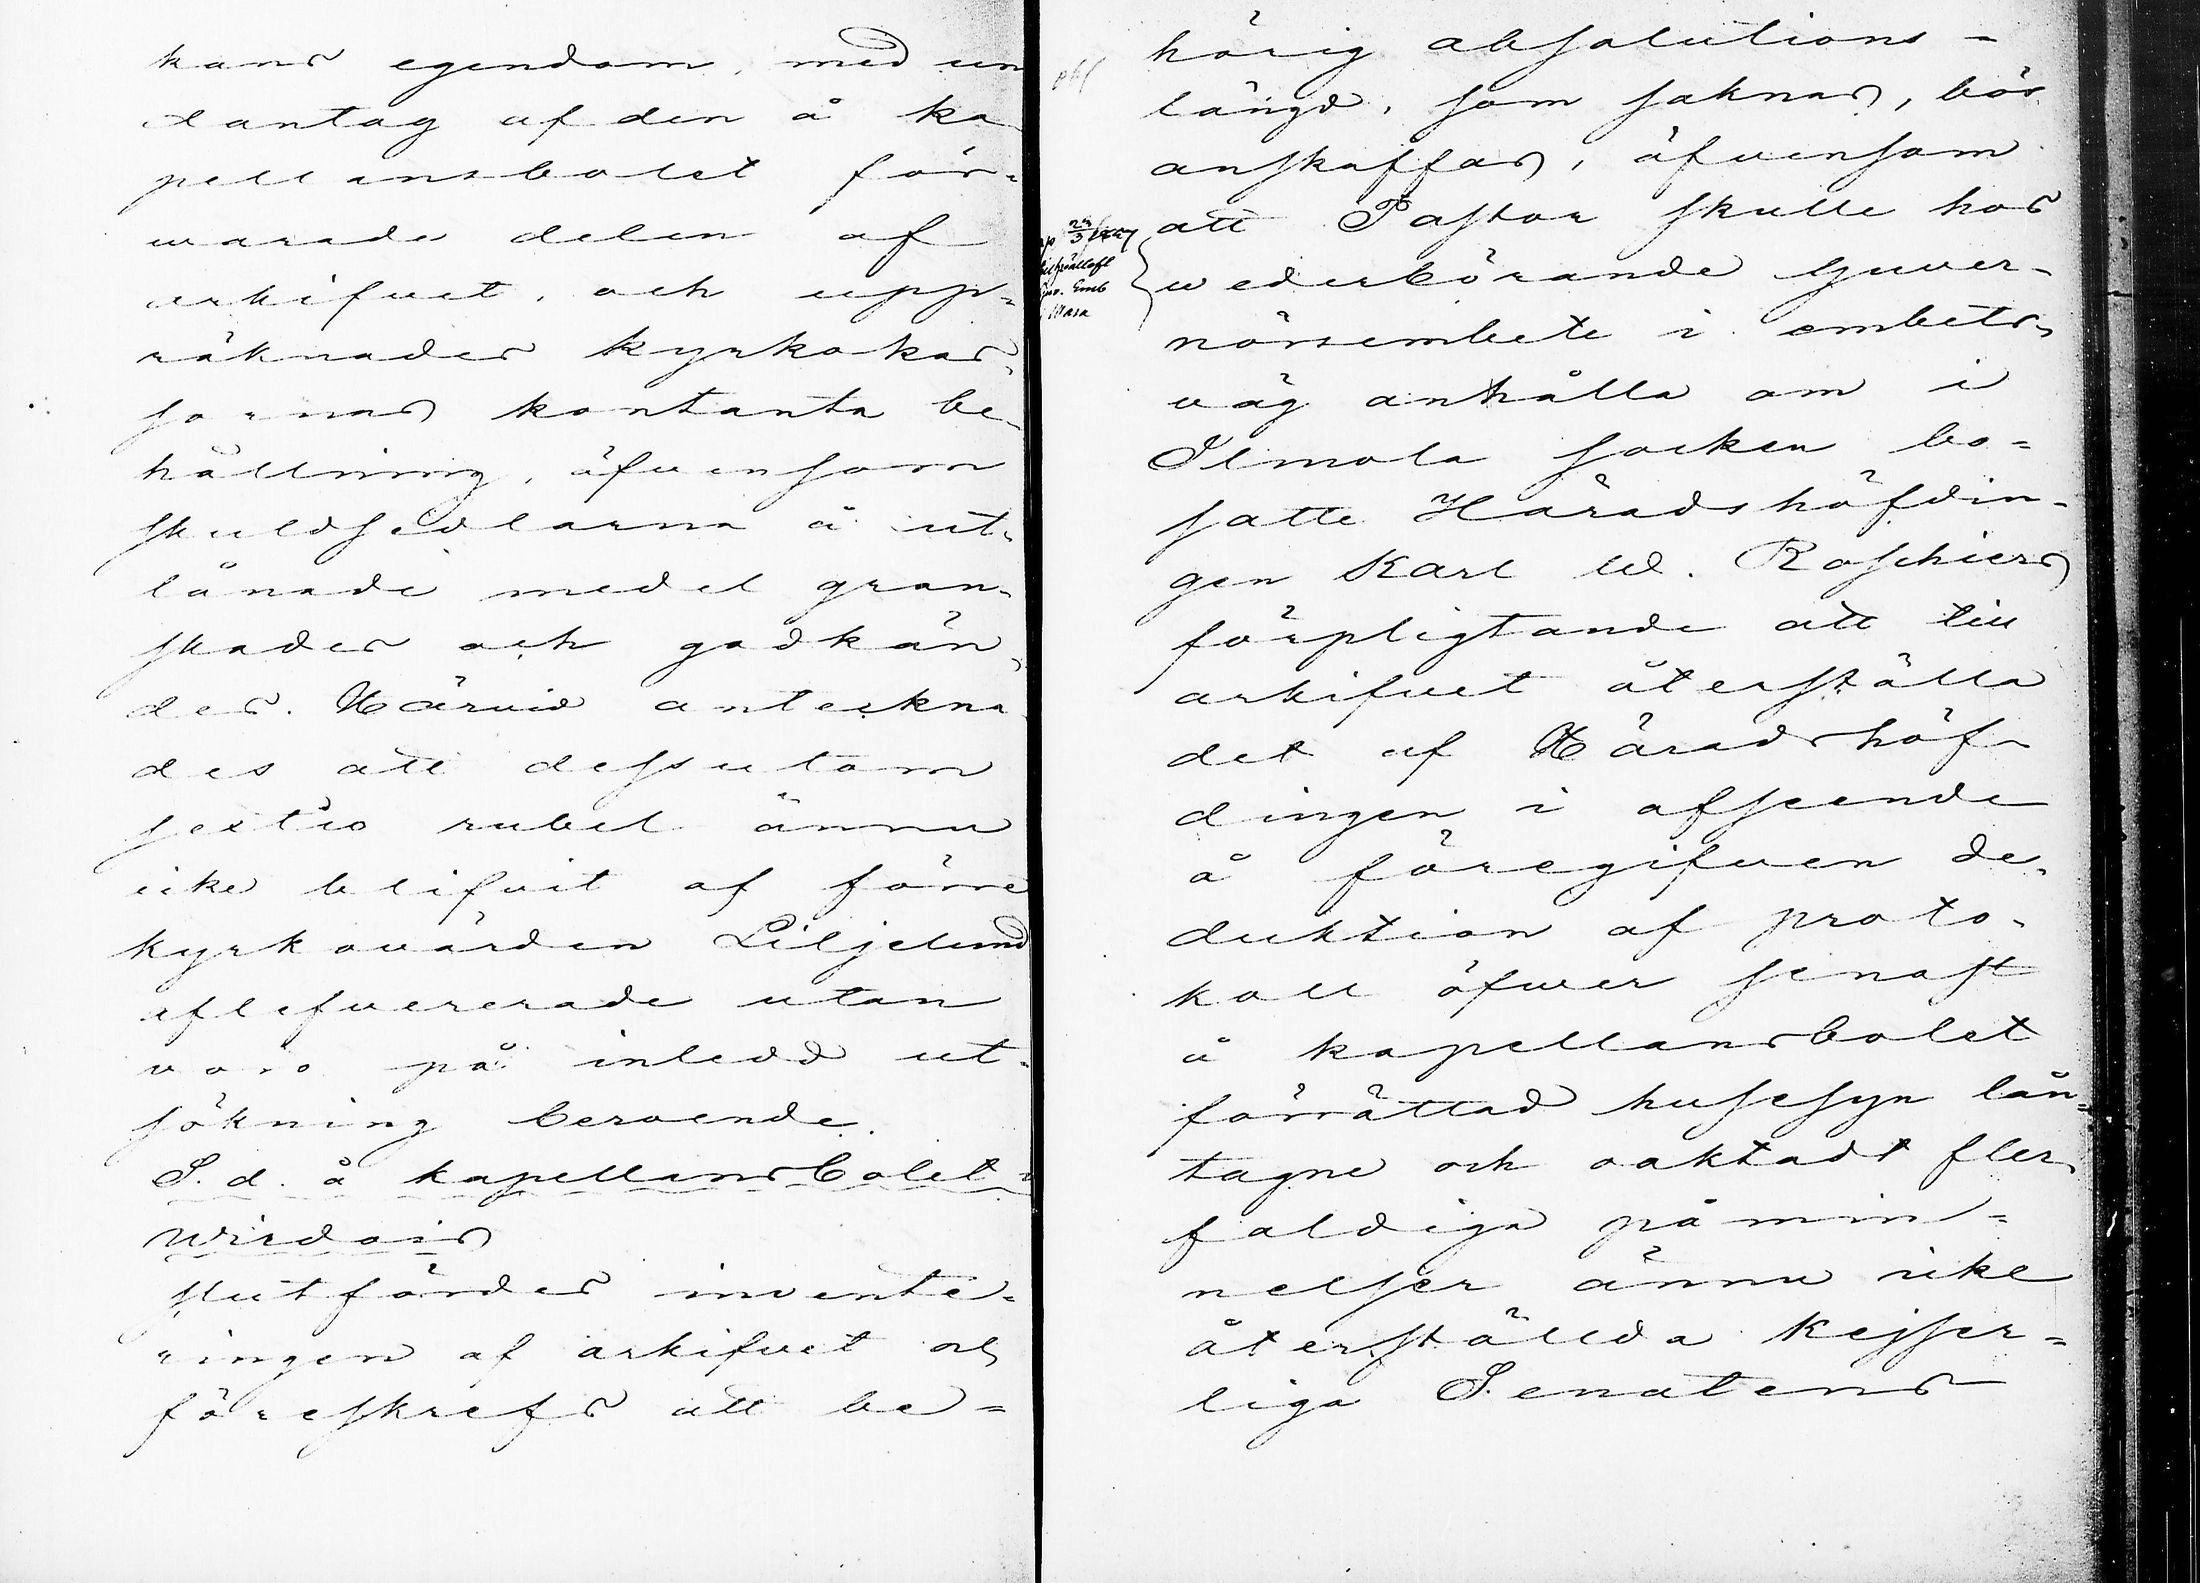 kans egendom, med un
dantag af den å ka
pellansbolet för=
warade delen af
arkifvet, och upp=
räknades kyrkokas
sornas kontanta be
hållning, äfvensom
skuldsedlarna å ut=
lånade medel gran=
skades och godkän
des. Härvid anteckna
des att dessutom
sextio rubel ännu
icke blifvit af förre
kyrkovärden Liljelund
aflefvererade utan
voro på inledd ut=
sökning beroende.
S. d. å kapellansbolet
Wirdois
slutfördes invente=
ringen af arkifvet och
föreskrefs att be=
obs
hörig absolutions=
längd, som saknas, bör
anskaffas, äfvensom
att Pastor skulle hos
wederbörande Guver=
nörsembete i embets=
väg anhålla om i
Ilmola socken bo=
satte Häradshöfdin=
gen Karl W. Roschiers
förpligtande att till
arkifvet återställa
det af Häradshöf=
dingen i afseende
å föregifven de=
duktion af proto=
koll öfver senast
å kapellansbolet
förrättad husesyn lån=
tagne och oaktadt fler
faldiga påmin=
nelser ännu icke
återställda Kejser=
liga Senatens
Guv. Emb
Wasa